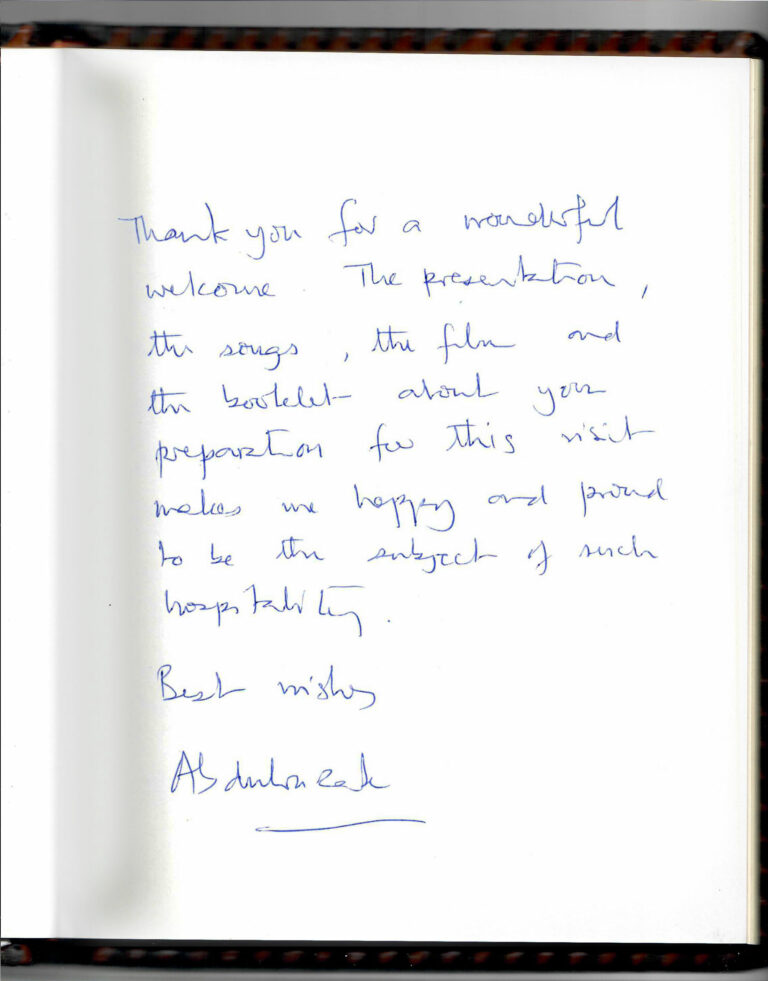 Thank you for a wonderful
welcome. The presentation,
the songs, the film and
the booklet about your
preparation for this visit
makes me happy and proud
to be the subject of such
hospitality.
Best wishes
Abdulrazak